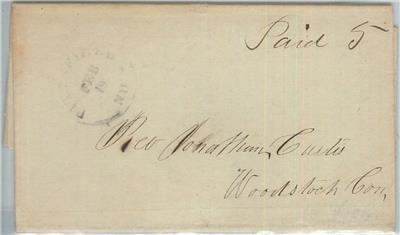 Paid 5
PITTSFIELD N.H
FEB
19
Rev Jonathan Curtis
Woodstock Con,